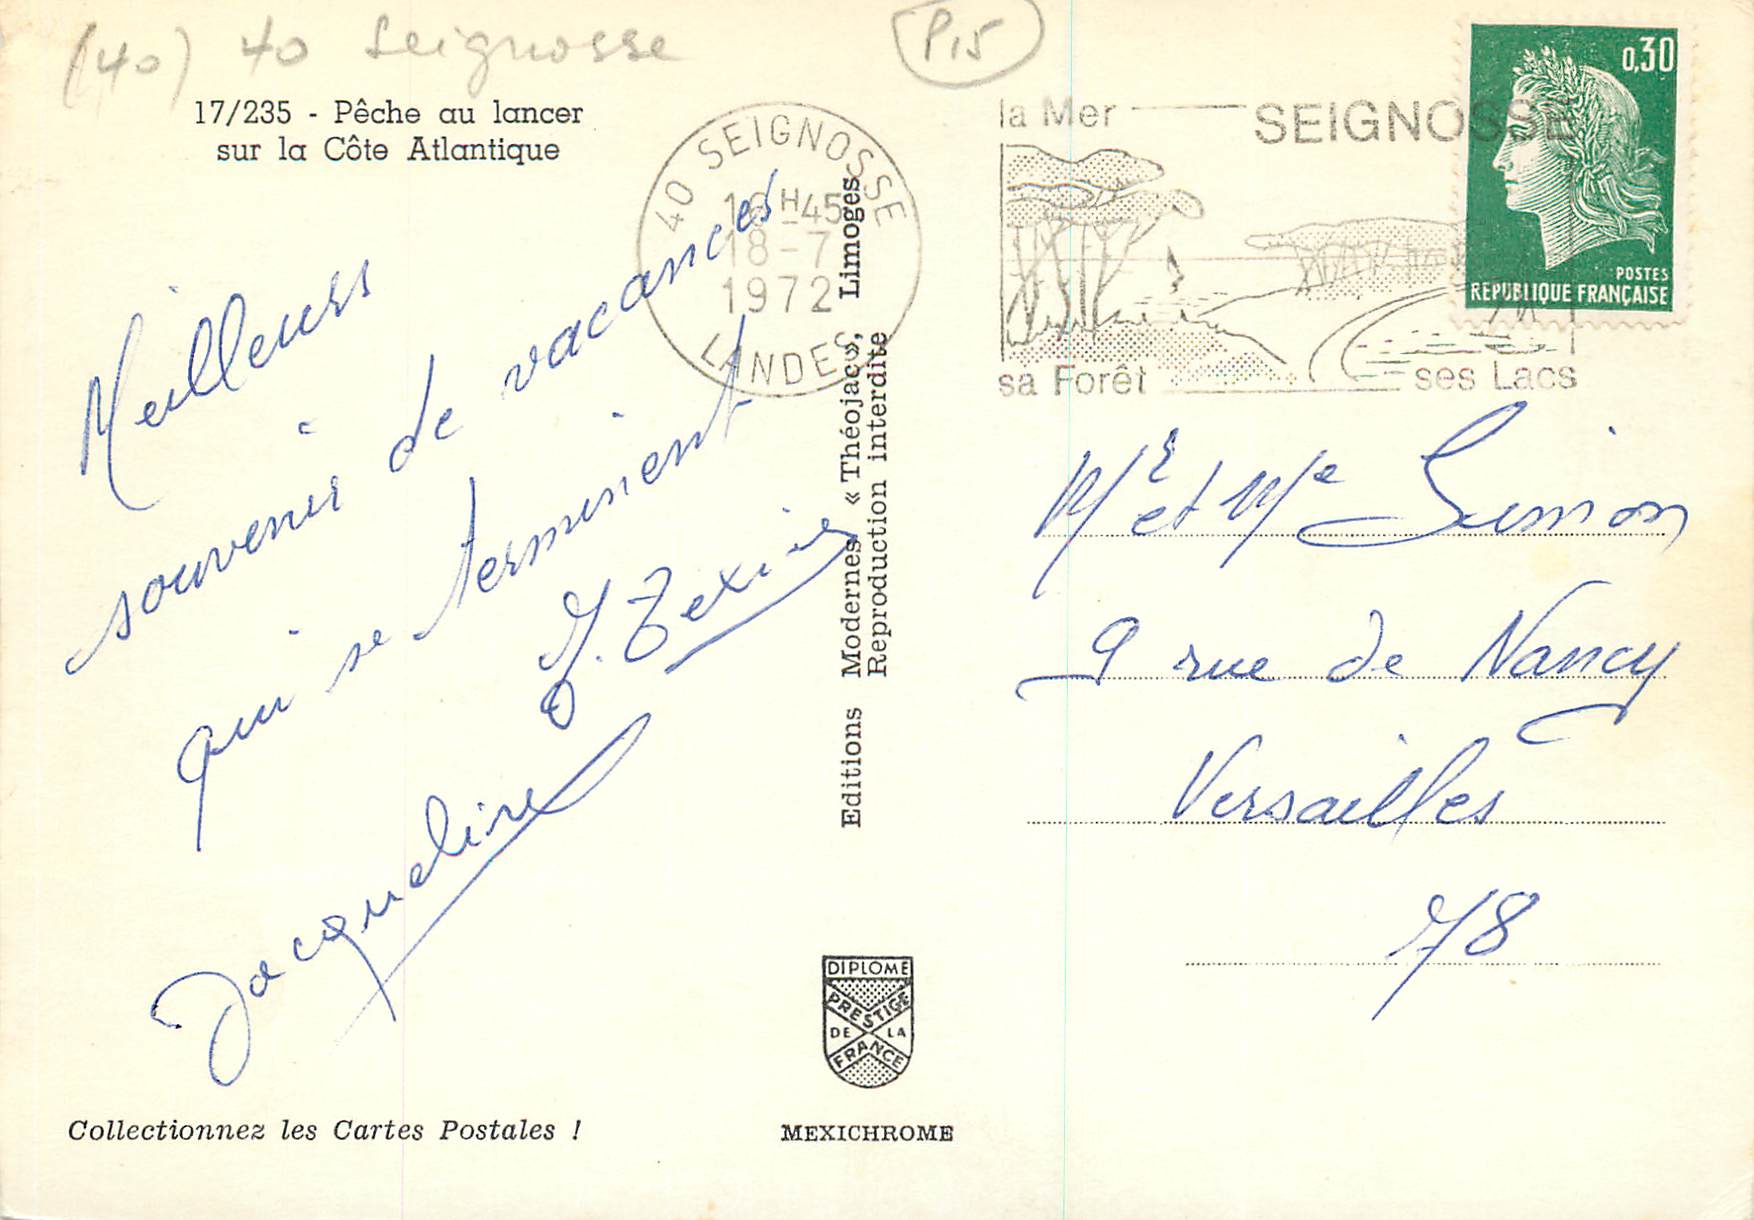 (40) 40 Seignosse
P15
17/235 - Pêche au lancer
sur la Côte Atlantique
40 SEIGNOSSE
16H45
18-7
1972
LANDES
la Mer
SEIGNOSSE
sa Forêt
ses Lacs
0,30
POSTES
REPUBLIQUE FRANÇAISE
Meilleurs
souvenirs de vacances
qui se terminent
J. Texier
Jacqueline
Editions Modernes « Théojac », Limoges
Reproduction interdite
Mr et Me
9 rue de Nancy
Versailles
78
DIPLOME
PRESTIGE
DE LA
FRANCE
Collectionnez les Cartes Postales !
MEXICHROME